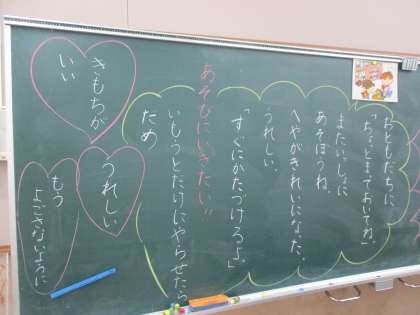 おともだちに、
「ちょっとまっておいてね」
またいっしょに
あそぼうね。
へやがきれいになった。
うれしい。
「すぐにかたづけるよ。」
あそびにいきたい!!
いもうとだけにやらせたら
だめ
きもちが
いい
うれしい
もう
よごさないように